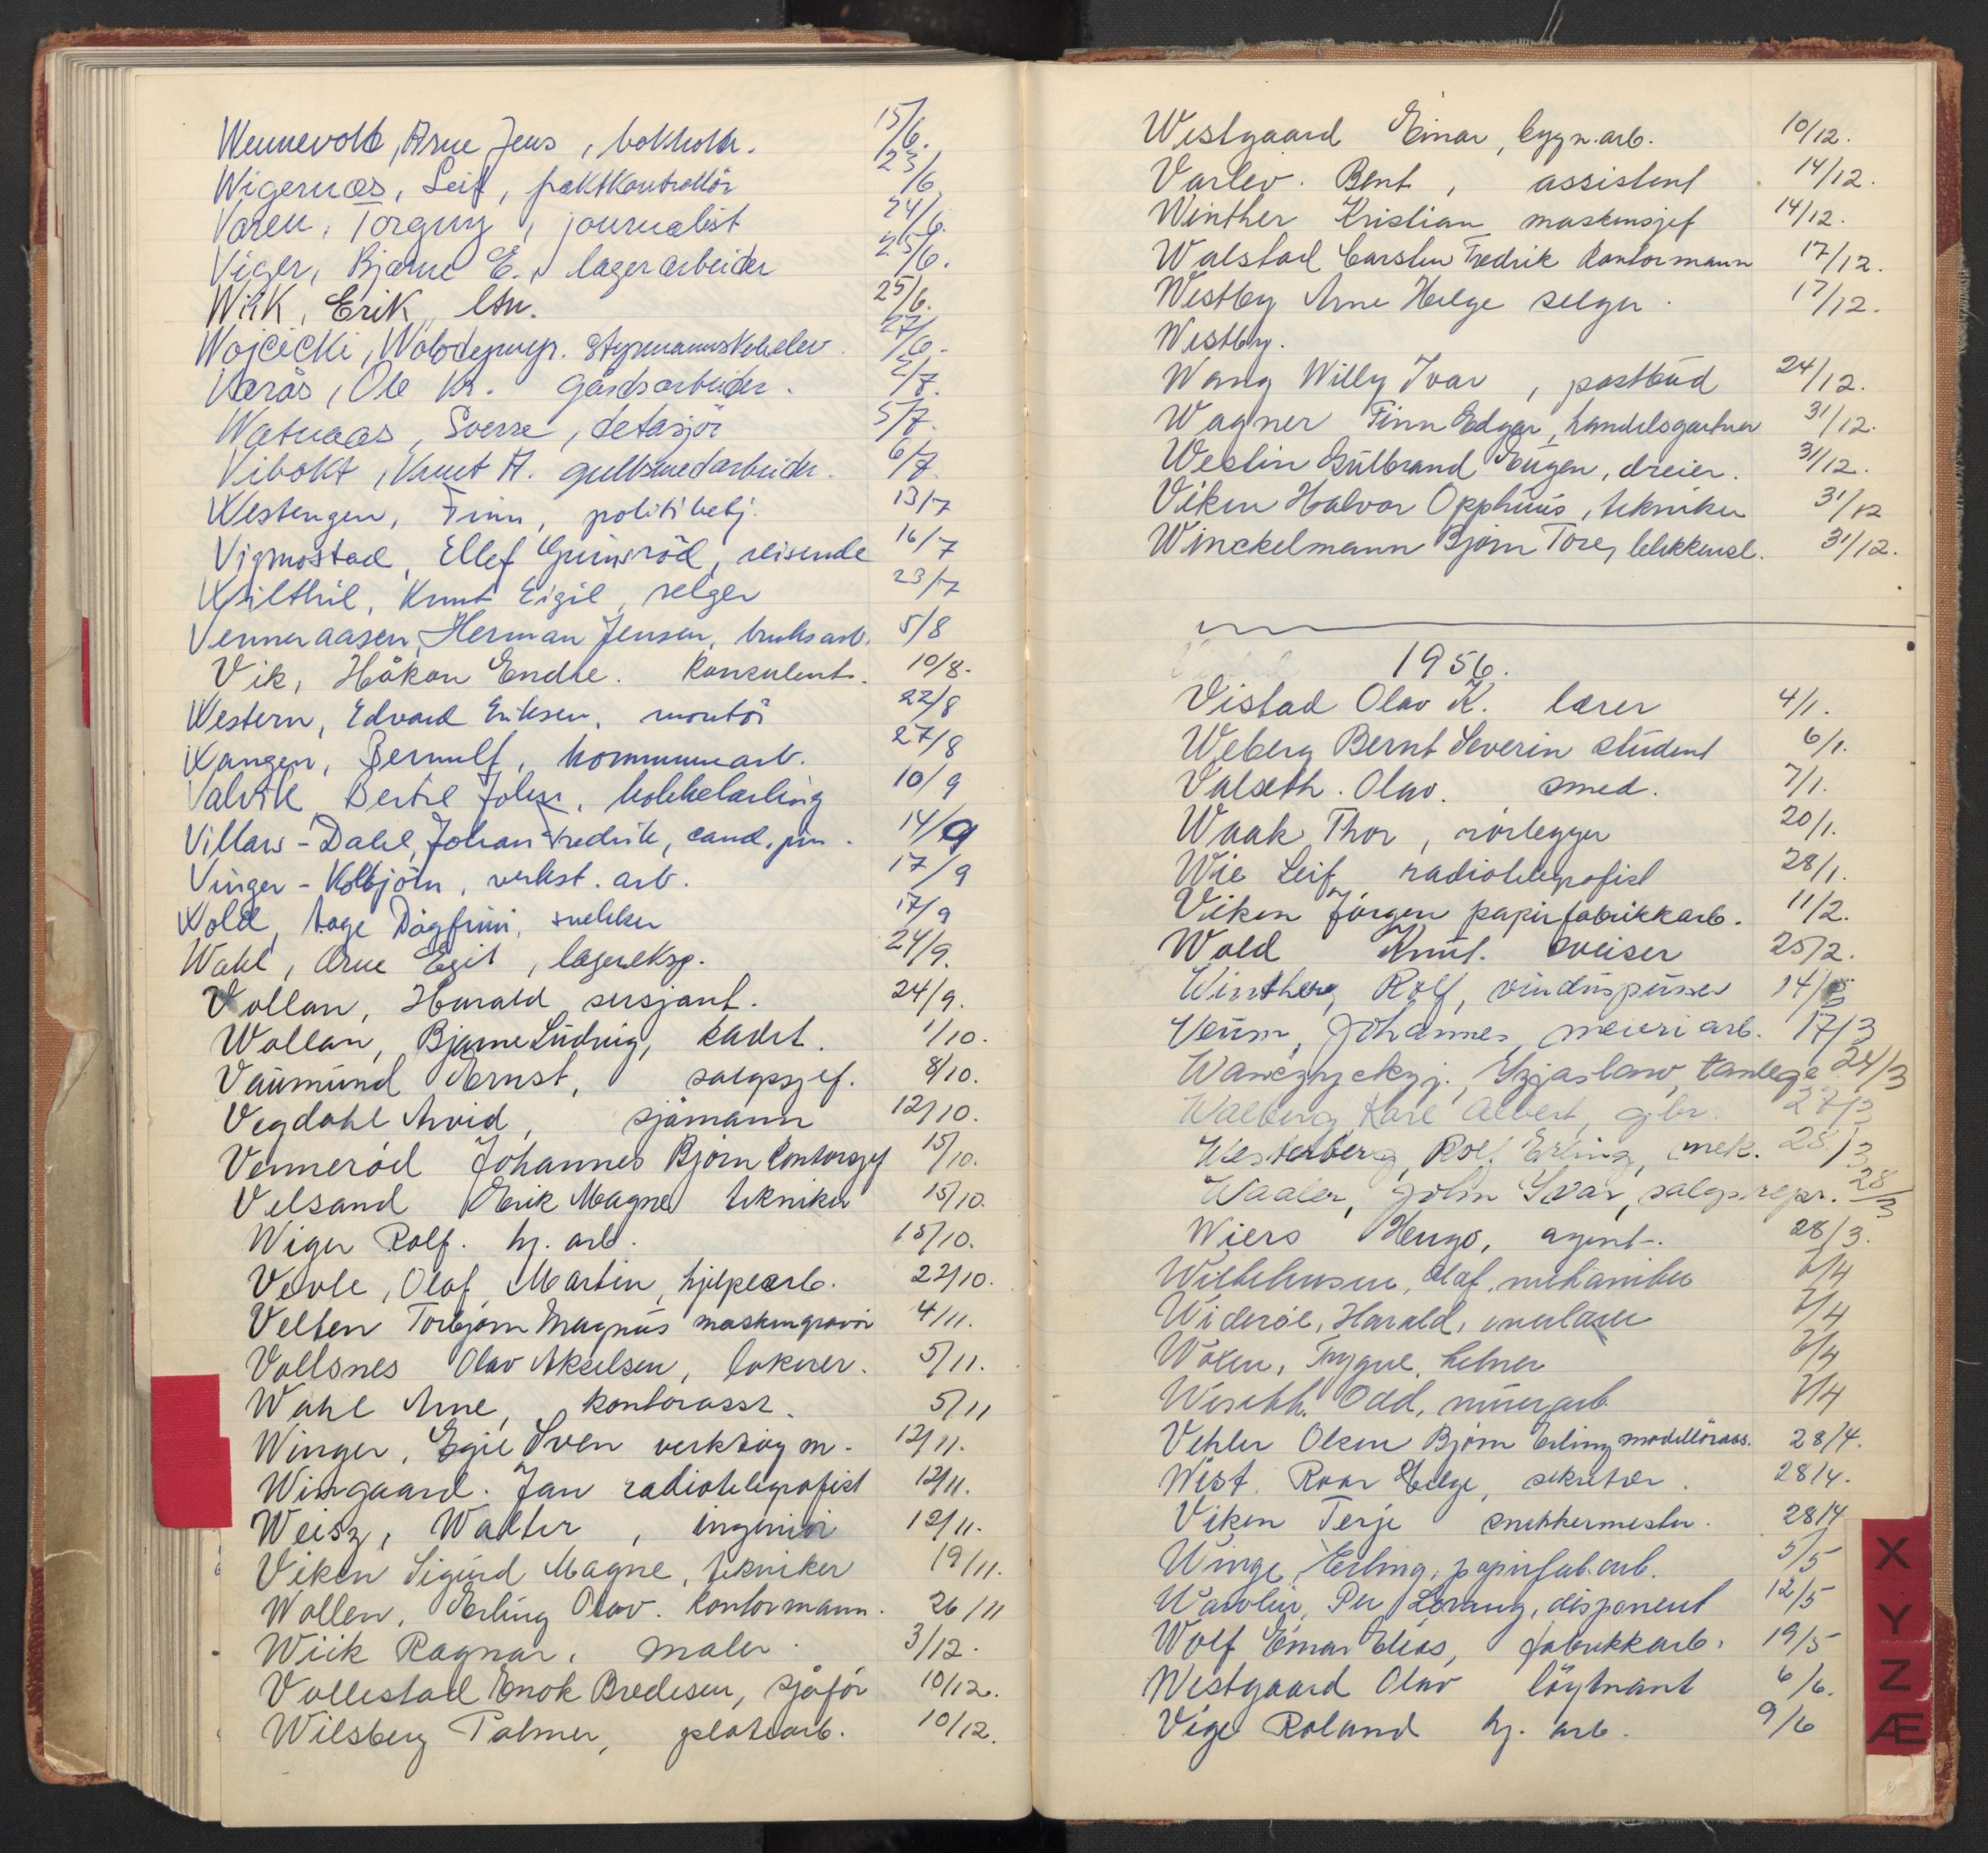 Wennevold, Arne Jens, bokholder. 15/6.
Wigernæs, Leif, fraktkontrollör 23/6
Voren, Torgny, journalist 24/6.
Viger, Bjarne E., lagerarbeider 25/6.
Wiik, Erik, ltn. 25/6.
Wojcicki, Wolodymyr. Styrmannskoleelev. 27/6.
Værås, Ole Kr. gårdsarbeider. 2/7.
Watnaas, Sverre, detasjör 5/7.
Vibokt, Knut A. gullsmedarbeider. 6/7.
Westengen, Finn, politibetj. 13/7
Vigmostad, Ellef Grimsröd, reisende 16/7
Knut Eigil, selger 23/7
Venneraasen, Herman Jensen, bruksarb. 5/8
Vik, Håkon Endre. Konsulent. 10/8.
Western, Edvard Eriksen, montör 22/8
Vangen, Bernulf, kommunearb. 27/8
Valvik, Bertil Johan, kokkelærling 10/9
Villars-Dahl, Johan Fredrik, cand. jur. 14/9
Vinger - Kolbjörn, verkst. arb. 17/9
Vold, Aage Dagfinn, snekker 17/9
Wahl, Arne Egil, lagereksp. 24/9.
Vollan, Harald sersjant. 24/9.
Wollan, Bjarne Ludvig, kadet. 1/10.
Vaumund Ernst, salgssjef. 8/10.
Vegdahl Arvid, sjömann 12/10.
Vennerød Johannes Bjørn kontorsjef 15/10.
Velsand Erik Magne tekniker 15/10.
Wiger Rolf. hj. arb. 15/10.
Vevle, Olaf Martin, hjelpearb. 22/10.
Velten Torbjørn Magnus maskingravör 4/11.
Vollsnes Olav Akselsen, lokerer. 5/11.
Wahl Arne, kontorass. 5/11
Winger, Egil Sven verktøy m. 12/11.
Wingaard. Jan radiotelegrafist 12/11.
Weisz, Walter, ingeniør 12/11.
Viken Sigurd Magne, tekniker 19/11.
Wollen, Erling Olav. kontormann. 26/11
Wiik Ragnar, maler. 3/12.
Vollestad Enok Bredesen, sjåfør 10/12.
Wilsberg Palmer, platearb. 10/12.
Westgaard Einar, bygn.arb. 10/12.
Varlev. Bent, assistent 14/12.
Winther Kristian maskinsjef 14/12.
Walstad Carsten Fredrik kontormann 17/12.
Westby Arne Helge selger. 17/12.
Westby.
Wang Willy Ivar, postbud 24/12.
Wagner Finn Edgar, handelsgartner 31/12.
Westin Gulbrand Eugen, dreier. 31/12.
Viken Halvor Opphuus, tekniker 31/12
Winckelmann Bjørn Tore, blikkensl. 31/12.
1956.
Vistad Olav K. lærer 4/1.
Weberg Bernt Severin student 6/1.
Valseth. Olav. smed. 7/1.
Waak Thor, rørlegger 20/1.
Wie Leif radiotelegrafist 28/1.
Viken Jörgen papirfabrikkarb. 11/2.
Wold Knut. sveiser 25/2.
Winther, Rolf, vinduspusser 14/3
Veum, Johannes, meieriarb. 17/3
Wanczyckyj., Yzjaslaw, tannlege 24/3
Walberg, Karl Albert, gbr. 27/3
Westerberg, Rolf Erling, mek. 28/3
Waaler, John Ivar, salgsrepr. 28/3
Wiers Hugo, agent. 28/3.
Wilhelmsen, Olaf, mekaniker 7/4
Widerøe, Harald, murlærer 7/4
Wølen, Trygve, kelner 7/4
Odd, murerarb 7/4
Vehler Olsen Bjørn Erling modellörass. 28/4.
Wist. Roar Helge, sekretær. 28/4.
Viken Terje snekkermester. 28/4
Winge, Erling, papirfab.arb. 5/5
Wavolin, Per Lorang, disponent 12/5
Wolf Einar Elias, fabrikkarb. 19/5
Westgaard Olav löytnant 6/6.
Vige Roland hj. arb. 9/6
X
Y
Z
Æ